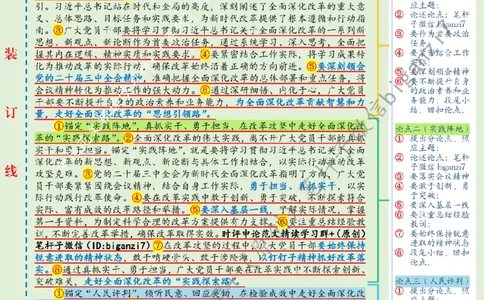 装
订
线
引。习近平总书记站在时代和全局的高度，深刻阐述了全面深化改革的重大意
义、总体思路、目标任务和实践要求，为新时代改革提供了根本遵循和行动指
南。③广大党员干部要将学习贯彻习近平总书记关于全面深化改革的一系列新
思想、新观点、新论断作为首要政治任务，通过系统学习、深入思考，全面把
握其内在逻辑、精神实质和实践要求。④要紧密结合工作实际，将学习成果转
化为推动改革的实际行动，确保改革始终沿着正确的方向前进。⑤要深刻领会
党的二十届三中全会精神，准确把握全面深化改革的总体部署和重点任务，将
会议精神转化为推动工作的强大动力。⑥通过深研细悟、内化于心，广大党员
干部要不断提升自身的政治素养和业务能力，为全面深化改革贡献智慧和力
量，走好全面深化改革的“思想引领路”。
①锚定“实践阵地”，真抓实干、勇于担当，在改革攻坚中走好全面深化改
革的“实践探索路”。②全面深化改革的伟大实践，离不开广大党员干部的真抓
实干和勇于担当。锚定“实践阵地”，就是要将学习贯彻习近平总书记关于全面
深化改革的新思想、新观点、新论断与具体工作相结合，以实际行动推动改革
攻坚克难。③党的二十届三中全会为新时代全面深化改革指明了方向，广大党
员干部要紧紧围绕会议精神，结合自身工作实际，勇于担当、真抓实干，以实
际行动践行改革使命。④要在改革实践中敢于创新、勇于突破，不断探索符合
实际、富有成效的改革路径和举措。⑤要深入基层一线，了解实际情况，掌握
第一手资料，为制定科学合理的改革方案提供有力支撑。⑥要注重总结经验教
训，不断完善改革举措，确保改革取得实效。时评申论范文精读学习群+（原创）
笔杆子微信（ID:biganzi7）⑦在改革攻坚的过程中，广大党员干部要始终保持
锐意进取的精神状态，敢于啃硬骨头、敢于涉险滩，以钉钉子精神抓好改革落
实。⑧通过真抓实干、勇于担当，广大党员干部要在改革实践中不断探索创新、
突破难关，走好全面深化改革的“实践探索路”。
①锚定“人民评判”，倾听民意、回应关切，在检验成效中走好全面深化改
应主题；
② 论述论点；笔杆
子微信 biganzi7
③ 要作为首要政治
任务，
④ 要学习成果转化
⑤ 要深刻领会精神
⑥ 要不断提升自身
的政治素养和业
务能力，段尾小
结，回扣论点。
论点二（实践阵地）
① 提出分论点，照
应主题；
② 论述论点；笔杆
子微信 biganzi7
③ 要落实会议精神
④ 要敢于创新、勇
于突破，
⑤ 要深入基层一线
⑥ 要注重总结经验
教训；
⑦ 要始终保持锐意
进取的精神状态
⑧ 段尾小结，回扣
论点。
论点三（人民评判）
① 提出分论点，照